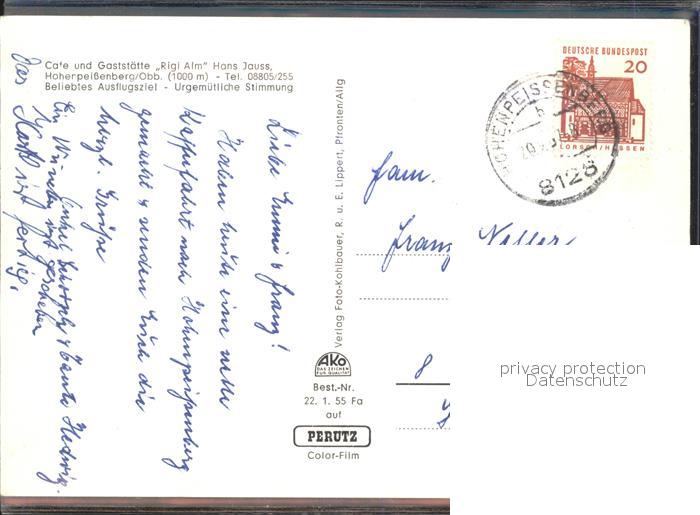 Cafe und Gaststätte „Rigi Alm“ Hans Jauss,
Hoherpeißenberg/Obb. (1000 m) - Tel. 08805/255
Beliebtes Ausflugsziel - Urgemütliche Stimmung
Liebe Emmi & Franz!
Haben heute eine nette
Kaffeefahrt nach Hohenpeißenberg
gemacht & senden Euch die
herzl. Grüße
Onkel & Tante Hedwig.
Ein Wunder ist geschehen
Das
Karte ist fertig.
Verlag Foto-Kohlbauer, R. u. E. Lippert, Pfronten/Allg
AKO
DAS ZEICHEN
FÜR QUALITÄT
Best.-Nr.
22. 1. 55 Fa
auf
PERUTZ
Color-Film
DEUTSCHE BUNDESPOST
20
LORSCH/HESSEN
HOHENPEISSENBERG
b
8128
Fam.
Franz
8
privacy protection
Datenschutz